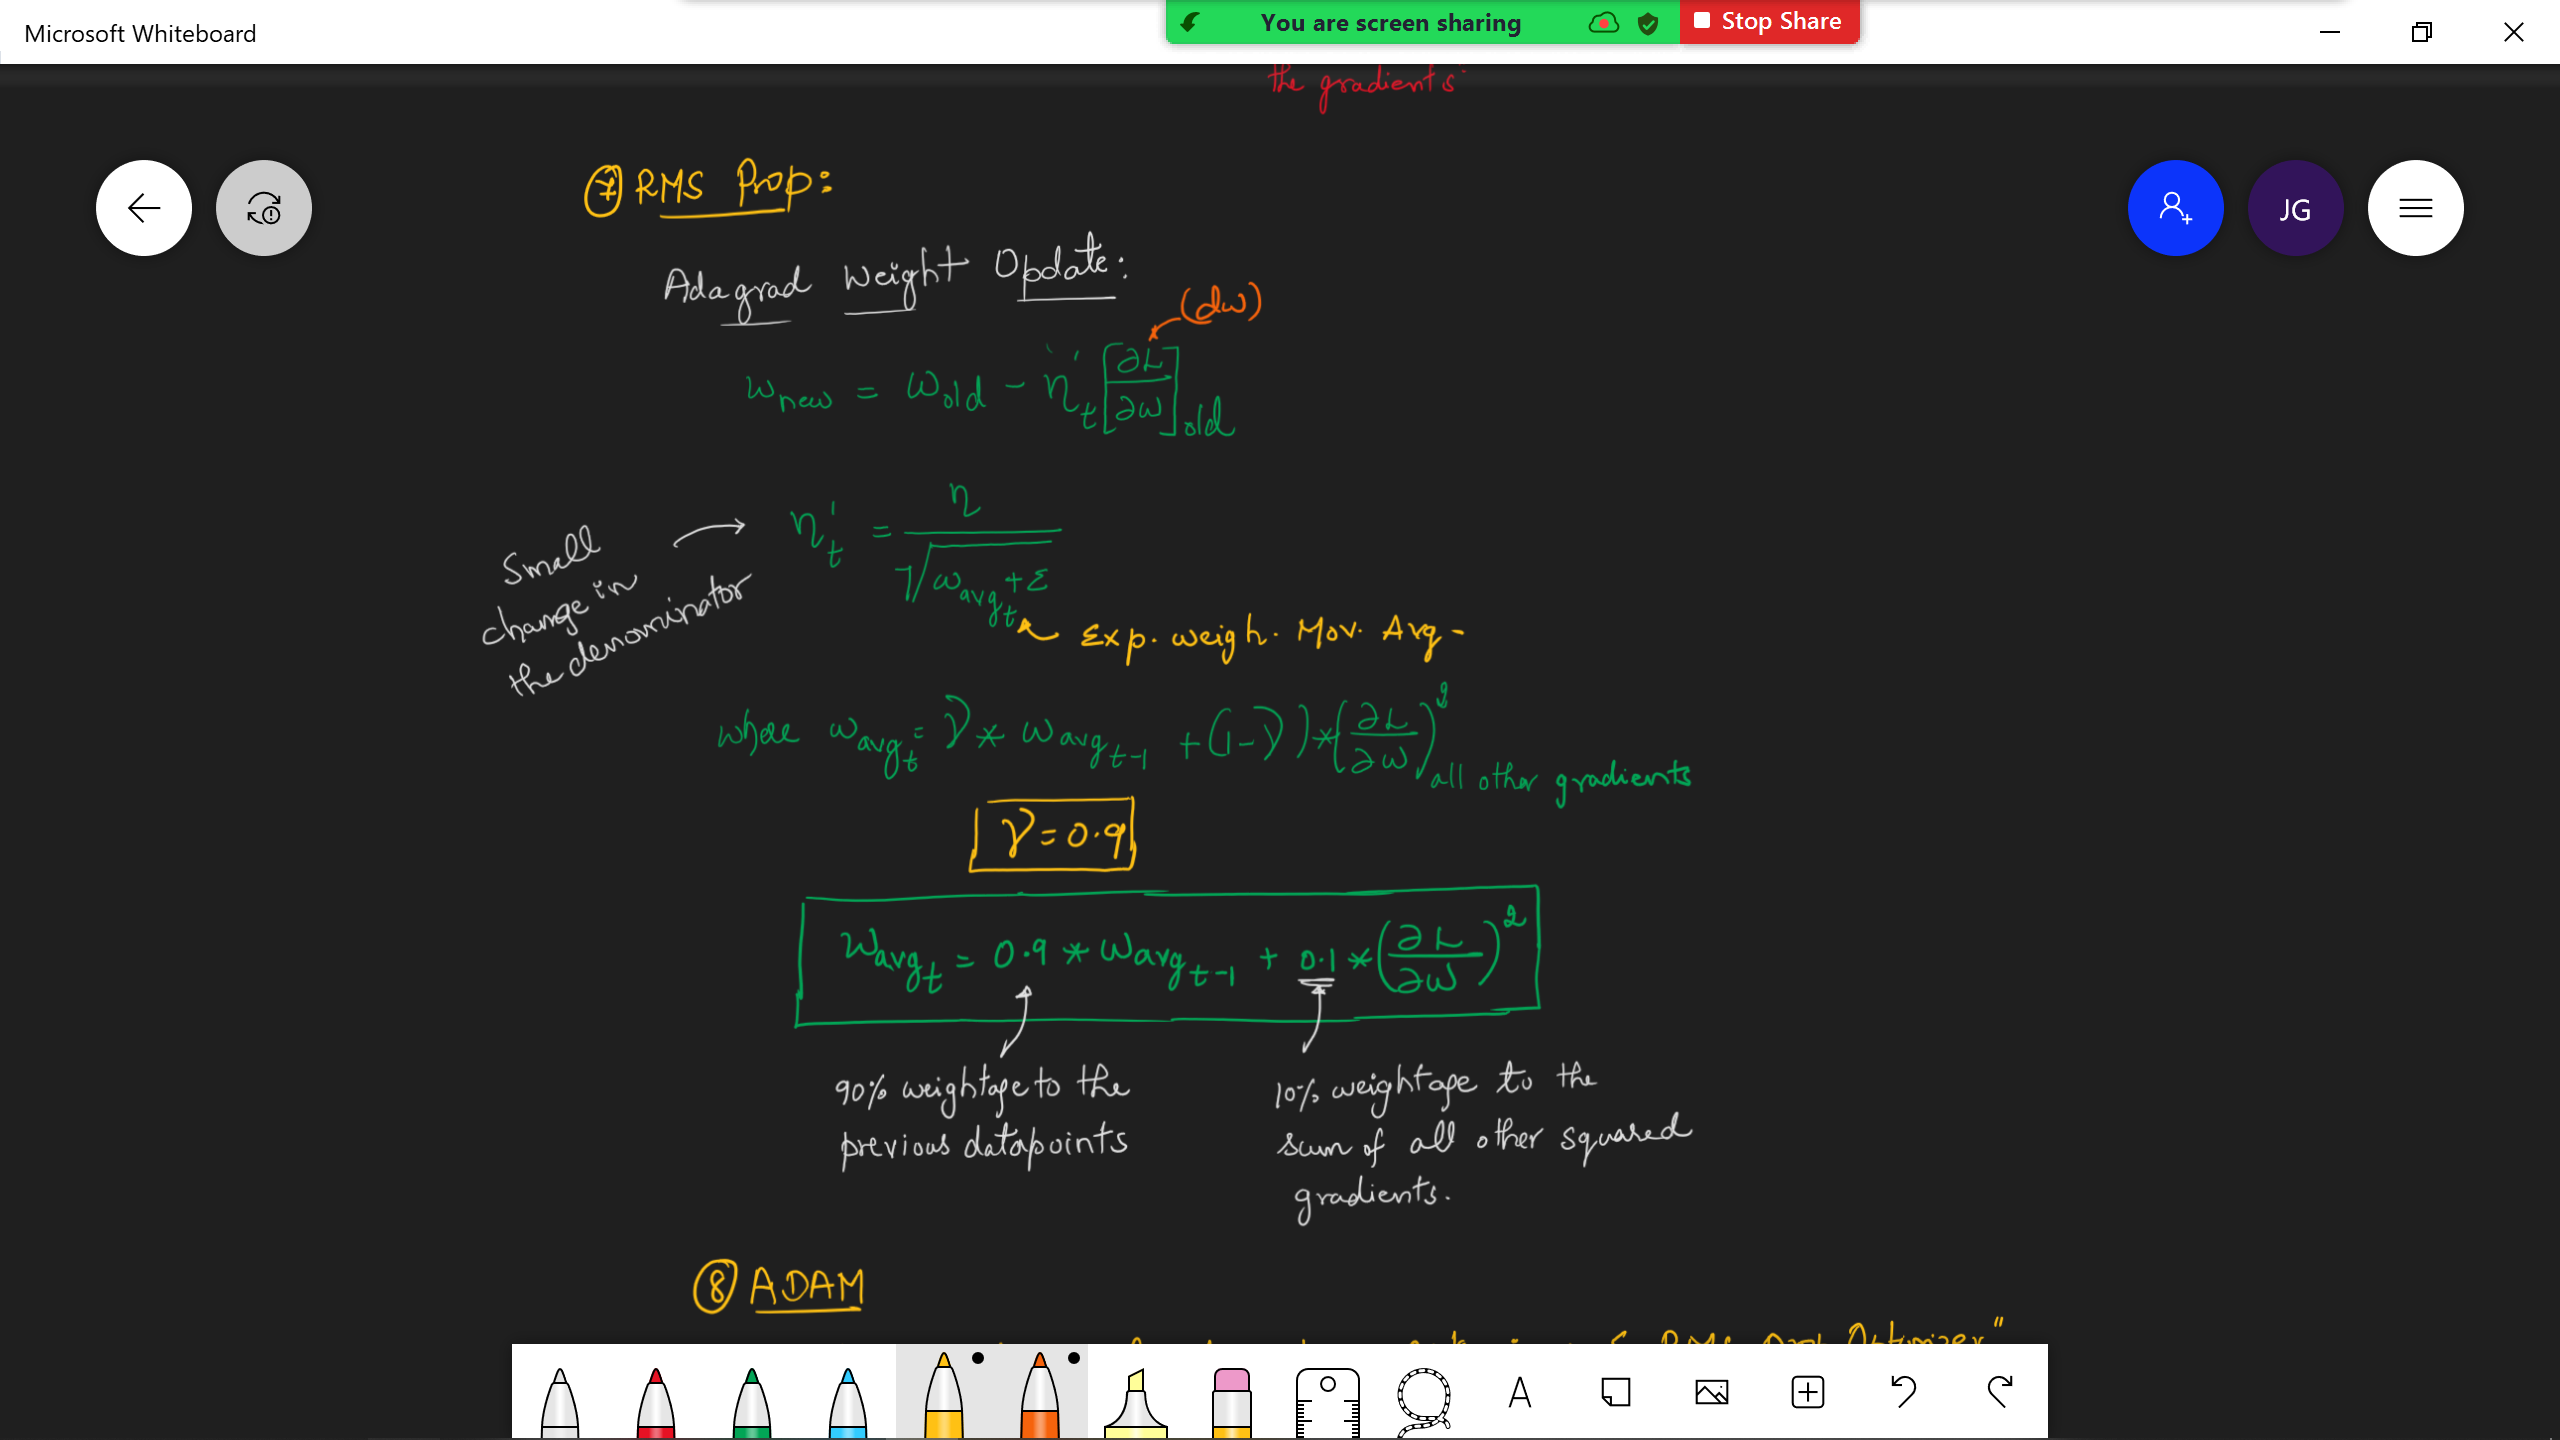 Microsoft Whiteboard
You are screen sharing
Stop Share
the gradients
JG
⑦ RMS Prop:
Adagrad Weight Update:
(dw)
w_new = w_old - η'_t [∂L/∂w]_old
Small
change in
the denominator
η'_t = η / √(w_avg_t + ε)
Exp. weigh. Mov. Avg -
where w_avg_t = γ * w_avg_t-1 + (1-γ) * (∂L/∂w)^2 all other gradients
γ = 0.9
w_avg_t = 0.9 * w_avg_t-1 + 0.1 * (∂L/∂w)^2
90% weightage to the
previous datapoints
10% weightage to the
sum of all other squared
gradients.
⑧ ADAM
RMS prop Optimizer"